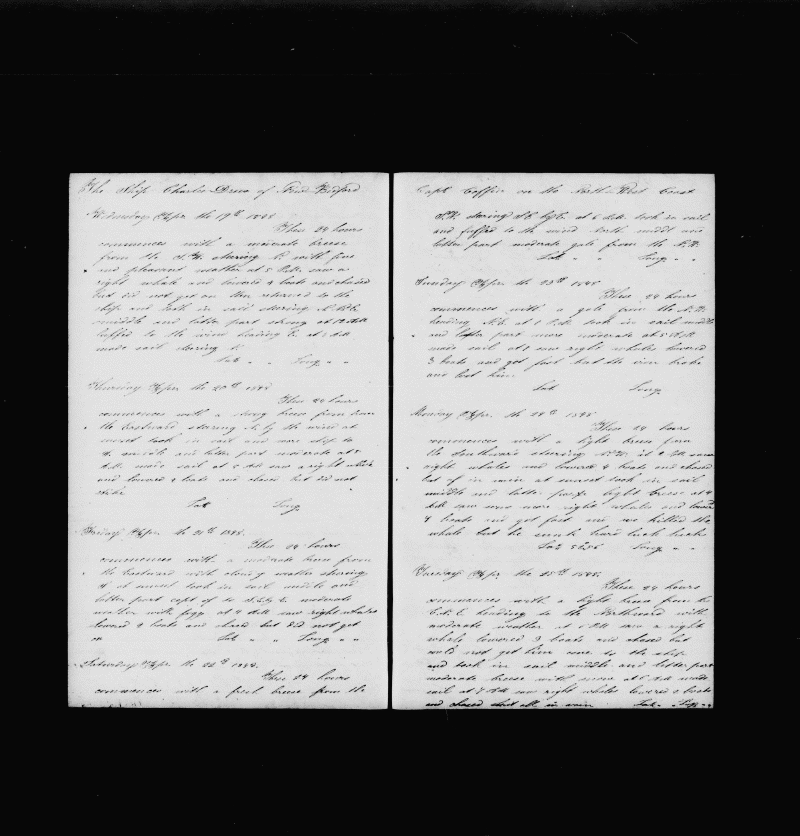 The Ship Charles Drew of New Bedford
Wednesday Apr the 19th 1848
These 24 hours
commences with a moderate breese
from the steering with fine
and pleasant weather at 5 P.M. saw a
right whale and lowered 4 boats and chased
but did not get on then returned to the
ship and took in sail steering
middle and latter part strong at
luffed to the wind heading at A.M.
made sail steering
Lat " " Long " "
Thursday Apr the 20th 1848
These 24 hours
commences with a strong breese from
the Eastward steering N. by the wind at
sunset took in sail and wore ship to
middle and latter part moderate at
A.M. made sail at A.M saw a right whale
and lowered 4 boats and chased but did not
strike
Lat Long
Friday Apr the 21st 1848
These 24 hours
commences with a moderate breese from
the Eastward with weather steering
at sunset took in sail middle and
latter part moderate
weather with fogg at 4 A.M. saw right whales
lowered 4 boats and chased but did not get
on Lat " " Long " "
Saturday Apr the 22nd 1848
These 24 hours
commences with a fresh breese from the
Capt Coffin on the North West Coast
steering at 6 A.M. took in sail
and luffed to the wind both middle and
latter part moderate gale from the
Lat " " Long " "
Sunday Apr the 23rd 1848
These 24 hours
commences with a gale from the
heading at P.M. took in sail middle
and latter part more moderate at 5 A.M.
made sail at saw right whales lowered
3 boats and got fast but the iron broke
and lost him
Lat Long
Monday Apr the 24th 1848
These 24 hours
commences with a light breese from
the Southward steering at P.M. saw
right whales and lowered 4 boats and chased
but in vain at sunset took in sail
middle and latter part light breese at 4
A.M. saw some more right whales and lowered
4 boats and got fast and we killed the
whale but he sunk
Lat Long " "
Tuesday Apr the 25th 1848
These 24 hours
commences with a light breese from the
heading to the Northward with
moderate weather at P.M saw a right
whale lowered 3 boats and chased but
could not get him came to the ship
and took in sail middle and latter part
moderate breese with snow at A.M. made
sail at A.M saw right whales lowered boats
and chased but all in vain Lat " Long "